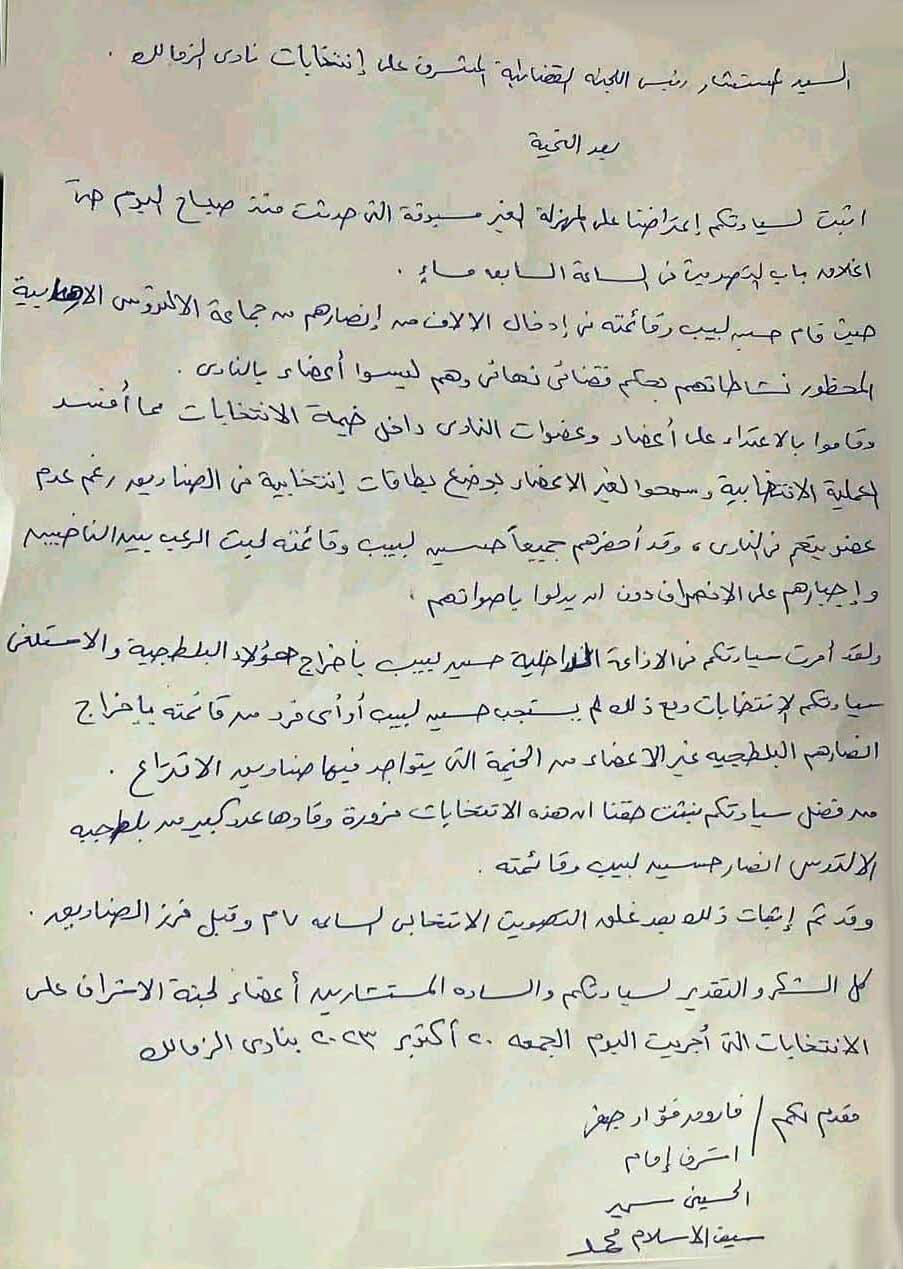 السيد المستشار رئيس اللجنه القضائية المشرف على إنتخابات نادى الزمالك .
بعد التحية
اثبت لسيادتكم إعتراضنا على المهزلة الغير مسبوقة التى حدثت منذ صباح اليوم حتى
اغلاق باب التصويت فى الساعة السابعه مساءٍ .
حيث قام حسين لبيب وقائمته فى إدخال الالاف من إنصارهم من جماعة الالتروس الارهابية
المحظور نشاطاتهم بحكم قضائى نهائى وهم ليسوا أعضاء بالنادى .
وقاموا بالاعتداء على أعضاء وعضوات النادى داخل خيمة الانتخابات مما أفسد
العملية الانتخابية وسمحوا لغير الاعضاء بوضع بطاقات إنتخابية فى الصناديق رغم عدم
عضويتهم فى النادى ، وقد أحضرهم جميعاً حسين لبيب وقائمته لبث الرعب بين الناخبين
وإجبارهم على الانصراف دون ان يدلوا باصواتهم .
ولقد أمرت سيادتكم فى الاذاعة الداخلية حسين لبيب بأخراج هؤلاء البلطجية والا ستلغى
سيادتكم الإنتخابات ومع ذلك لم يستجب حسين لبيب أو أى فرد من قائمته بإخراج
انصارهم البلطجيه غير الاعضاء من الخيمة التى يتواجد فيها صناديق الاقتراع .
من فضل سيادتكم نثبت حقنا ان هذه الانتخابات مزورة وقادها عدد كبير من بلطجيه
الالترس انصار حسين لبيب وقائمته .
وقد تم إثبات ذلك بعد غلق التصويت الانتخابى لساعه ٧م وقبل فرز الصناديق .
كل الشكر والتقدير لسيادتكم والساده المستشارين أعضاء لجنة الاشراف على
الانتخابات التى أُجريت اليوم الجمعه ٢٠ أكتوبر ٢٠٢٣ بنادى الزمالك
مقدم لكم / فاروق فؤاد جعفر
اشرف إمام
الحسينى سمير
سيف الاسلام محمد